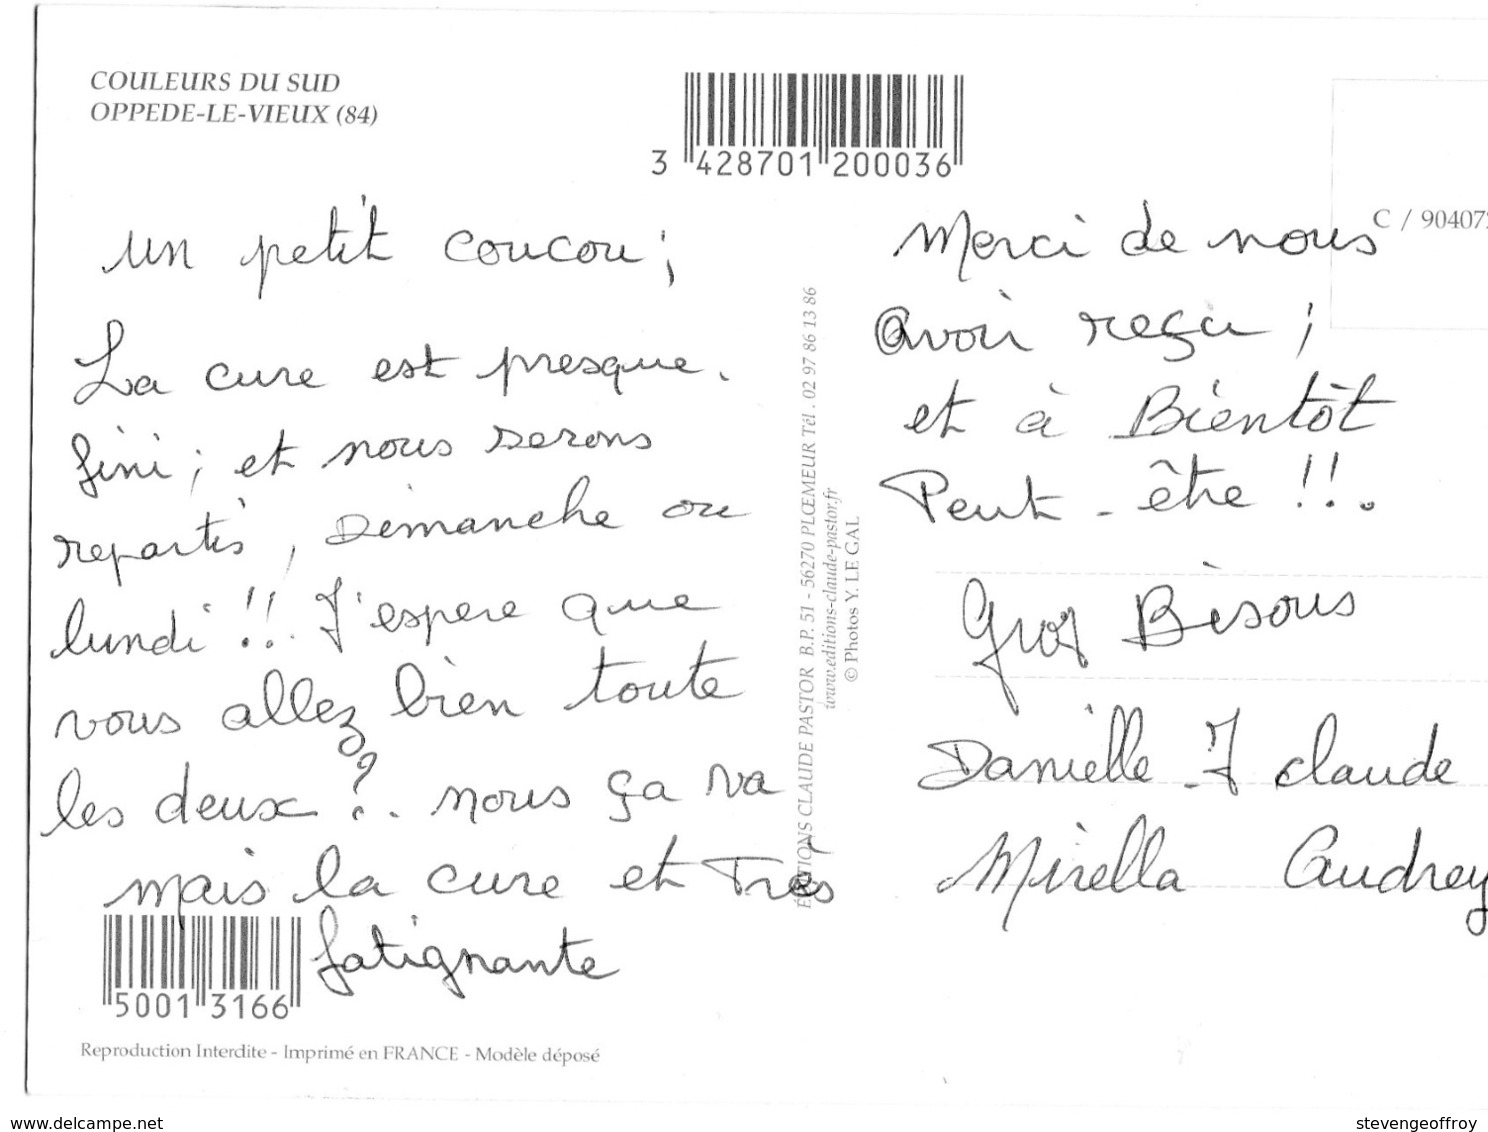 COULEURS DU SUD
OPPEDE-LE-VIEUX (84)
3 428701 200036
C / 90407
un petit coucou ;
La cure est presque.
fini ; et nous serons
repartis, Dimanche ou
lundi !!. J'espere que
vous allez bien toute
les deux ?. nous ça va
mais la cure et Très
fatignante
5001 3166
Reproduction Interdite - Imprimé en FRANCE - Modèle déposé
ÉDITIONS CLAUDE PASTOR B.P. 51 - 56270 PLŒMEUR Tél. 02 97 86 13 86
www.editions-claude-pastor.fr
© Photos Y. LE GAL
Merci de nous
avoir reçu ;
et à Bientôt
Peut-être !!.
Gros Bisous
Danielle - J claude
Mirella Audrey
www.delcampe.net
stevengeoffroy